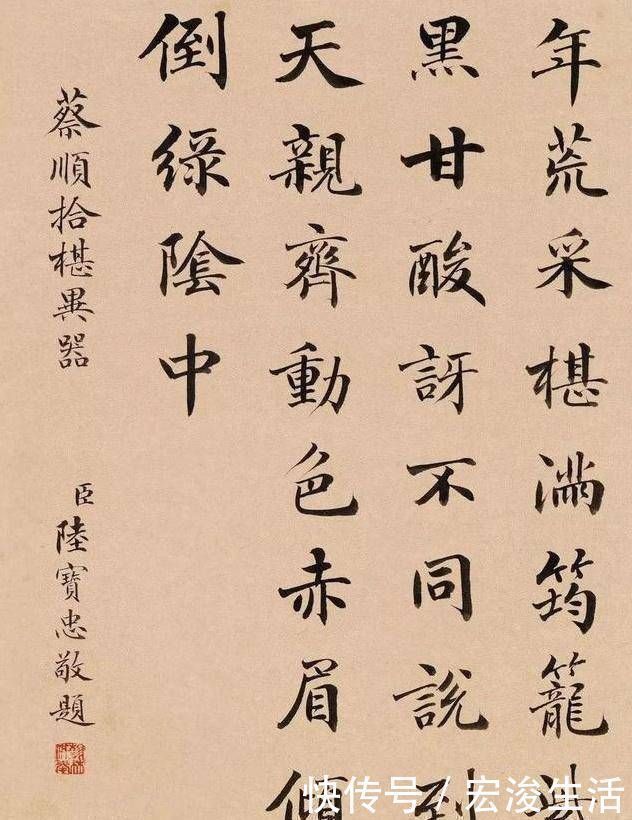 年荒采椹滿筠籠
黑甘酸訝不同說到
天親齊動色赤眉傾
倒綠陰中
蔡順拾椹異器
臣陸寶忠敬題
快传号 / 宏浚生活